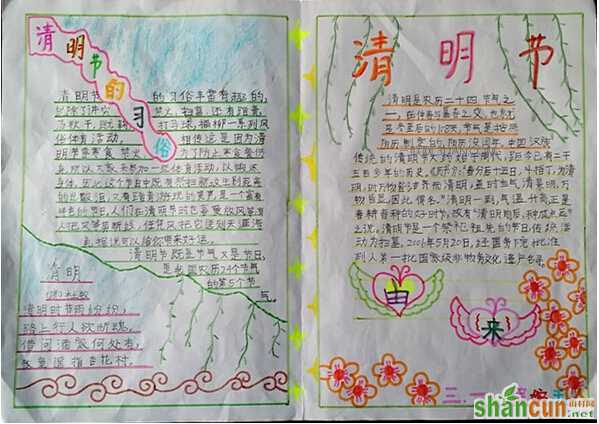 清明节的习俗
清明节的习俗丰富有趣的,
除了讲究禁火、扫墓,还有踏青、
荡秋千、蹴鞠、打马球、插柳一系列风
俗体育活动。相传这是因为清
明节要寒食禁火,为了防止寒食冷餐伤
身,所以大家来参加一些体育活动,以锻炼
身体。因此,这个节日中既有祭扫新坟生别死离
的悲酸泪,又有踏青游玩的笑声,是一个富有
特色的节日。
清明节既是节气又是节日,
是我国农历24个节气
的第5个节
气。
清明
(唐)杜牧
清明时节雨纷纷,
路上行人欲断魂。
借问酒家何处有,
牧童遥指杏花村。
清明节
清明是农历二十四节气之
一,在仲春与暮春之交,也就
是冬至后的108天。
传统的清明节大约始于周代,距今已有二千
五百多年的历史。《历书》:"春分后十五日,斗指丁,为清
明,时万物皆洁齐而清明,盖时当气清景明,万
物皆显,因此得名。"清明一到,气温升高,正是
春耕春种的好时节,故有"清明前后,种瓜点豆"
之说。清明节是一个祭祀祖先的节日,传统活
动为扫墓。2006年5月20日,经国务院批准
列入第一批国家级非物质文化遗产名录。
由
来
shancun
山村网
.net